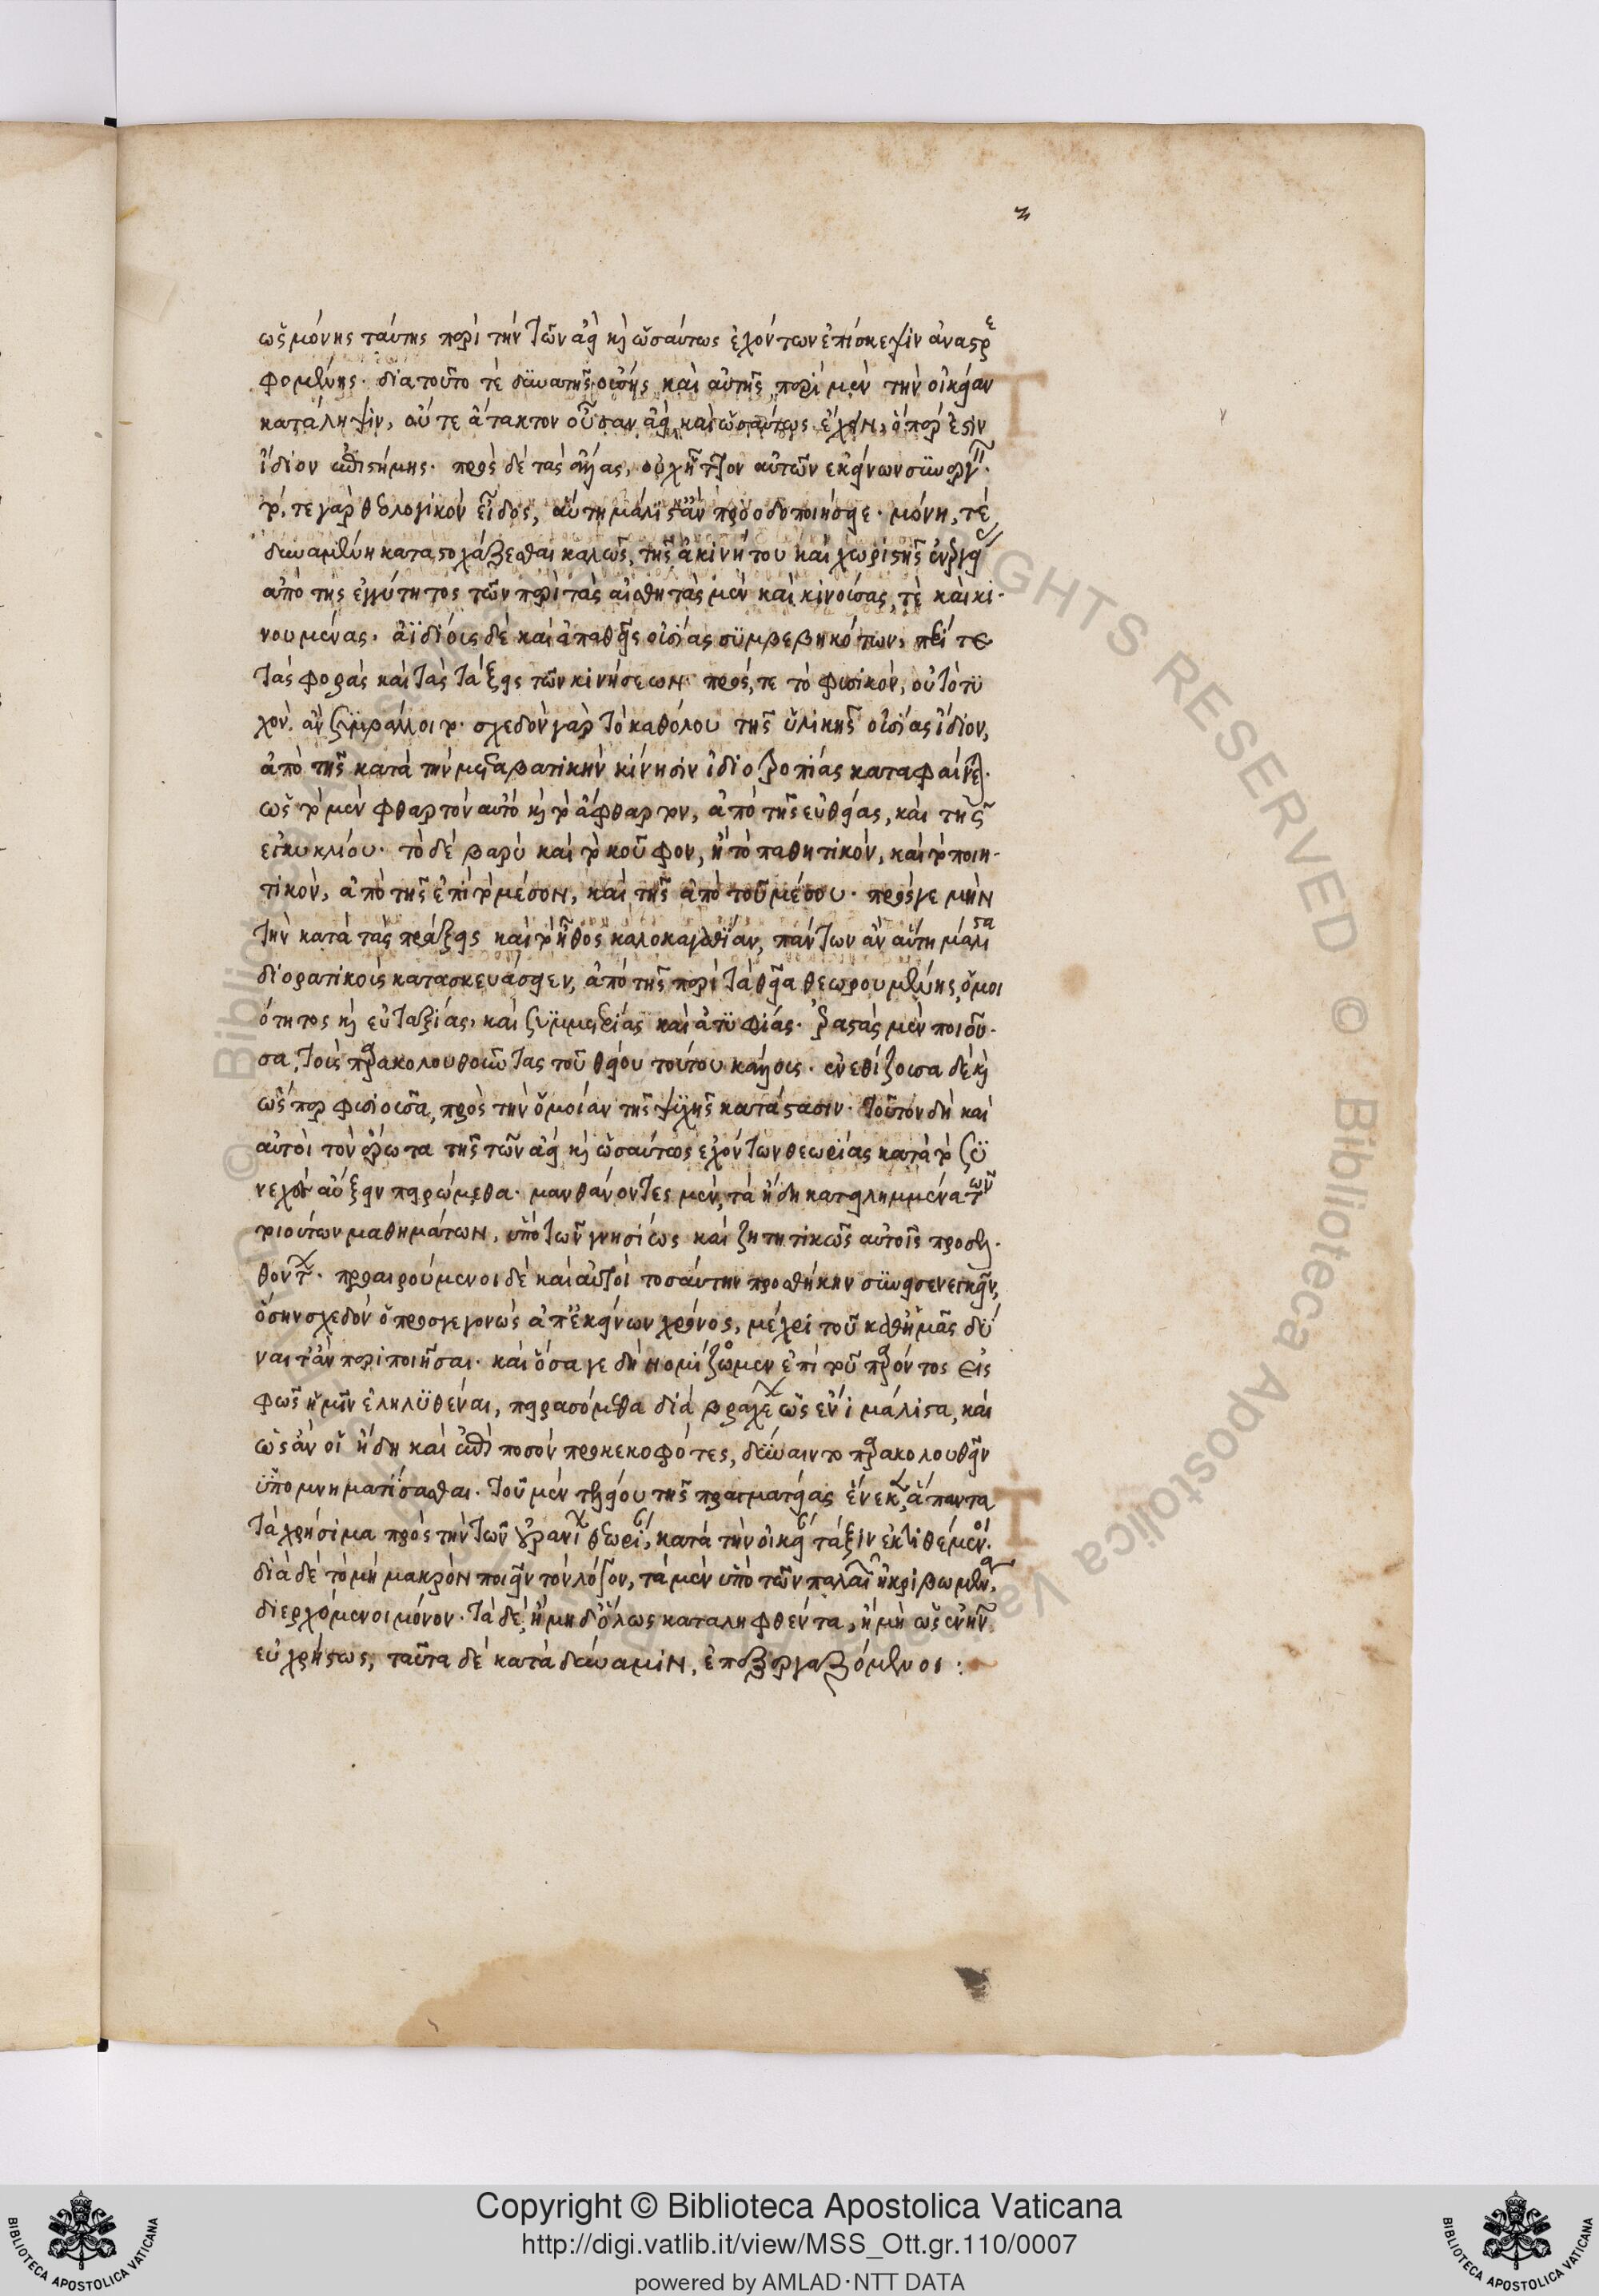 3
ὡς μόνης ταύτης περὶ τὴν τῶν ἀεὶ καὶ ὡσαύτως ἐχόντων ἐπίσκεψιν ἀναστρε
φομένης· διὰ τοῦτό τε δυνατῆς οὔσης καὶ αὐτῆς, περὶ μὲν τὴν οἰκείαν
κατάληψιν, οὔτε ἄτακτον οὖσαν ἀεὶ καὶ ὡσαύτως ἔχειν, ὅπερ ἐστὶν
ἴδιον ἐπιστήμης· πρὸς δὲ τὰς ἄλλας, οὐχ ἧττον αὐτῶν ἐκείνων συνεργεῖν·
τό, τε γὰρ θεολογικὸν εἶδος, αὕτη μάλιστ' ἂν προοδοποιήσειε· μόνη, τε
δυναμένη καταστοχάζεσθαι καλῶς, τῆς ἀκινήτου καὶ χωριστῆς ἐνεργείας
ἀπὸ τῆς ἐγγύτητος τῶν περὶ τὰς αἰσθητὰς μὲν καὶ κινούσας, τὲ καὶ κι-
νουμένας· ἀϊδίους δὲ καὶ ἀπαθεῖς οὐσίας συμβεβηκότων, περί τε
τὰς φορὰς καὶ τὰς τάξεις τῶν κινήσεων· πρός, τε τὸ φυσικόν, οὐ τὸ τυ
χὸν ἂν συμβάλλοιτο· σχεδὸν γὰρ τὸ καθόλου τῆς ὑλικῆς οὐσίας ἴδιον,
ἀπὸ τῆς κατὰ τὴν μεταβατικὴν κίνησιν ἰδιοτροπίας καταφαίνεται·
ὡς τὸ μὲν φθαρτὸν αὐτὸ καὶ τὸ ἄφθαρτον, ἀπὸ τῆς εὐθείας, καὶ τῆς
ἐγκυκλίου· τὸ δὲ βαρὺ καὶ τὸ κοῦφον, ἢ τὸ παθητικόν, καὶ τὸ ποιη-
τικόν, ἀπὸ τῆς ἐπὶ τὸ μέσον, καὶ τῆς ἀπὸ τοῦ μέσου· πρός γε μὴν
τὴν κατὰ τὰς πράξεις καὶ τὸ ἦθος καλοκαγαθίαν, πάντων ἂν αὕτη μάλιστα
διορατικοὺς κατασκευάσειεν, ἀπὸ τῆς περὶ τὰ θεῖα θεωρουμένης, ὁμοι
ότητος καὶ εὐταξίας, καὶ συμμετρίας καὶ ἀτυφίας· ἐραστὰς μὲν ποιοῦ-
σα, τοὺς παρακολουθοῦντας τοῦ θείου τούτου κάλλους· ἐνεθίζουσα δὲ καὶ
ὥσπερ φυσιοῦσα, πρὸς τὴν ὁμοίαν τῆς ψυχῆς κατάστασιν· τοῦτον δὴ καὶ
αὐτοὶ τὸν ἔρωτα τῆς τῶν ἀεὶ καὶ ὡσαύτως ἐχόντων θεωρίας κατὰ τὸ συ
νεχὲς αὔξειν πειρώμεθα· μανθάνοντες μέν, τὰ ἤδη κατειλημμένα τῶν
τοιούτων μαθημάτων, ὑπὸ τῶν γνησίως καὶ ζητητικῶς αὐτοῖς προσελ-
θόντων· προαιρούμενοι δὲ καὶ αὐτοὶ τοσαύτην προσθήκην συνεισενεγκεῖν,
ὅσην σχεδὸν ὁ προσγεγονὼς ἀπ' ἐκείνων χρόνος, μέχρι τοῦ καθ' ἡμᾶς δύ
ναιτ' ἂν περιποιῆσαι· καὶ ὅσα γε δὴ νομίζομεν ἐπὶ τοῦ παρόντος εἰς
φῶς ἡμῖν ἐληλυθέναι, πειρασόμεθα διὰ βραχέων ὡς ἔνι μάλιστα, καὶ
ὡς ἂν οἱ ἤδη καὶ ἐπὶ ποσὸν προκεκοφότες, δύναιντο παρακολουθεῖν
ὑπομνηματίσασθαι· τοῦ μὲν τελείου τῆς πραγματείας ἕνεκα, ἅπαντα
τὰ χρήσιμα πρὸς τὴν τῶν οὐρανίων θεωρίαν, κατὰ τὴν οἰκείαν τάξιν ἐκτιθέμενοι·
διὰ δὲ τὸ μὴ μακρὸν ποιεῖν τὸν λόγον, τὰ μὲν ὑπὸ τῶν παλαιῶν ἠκριβωμένα,
διερχόμενοι μόνον· τὰ δέ, ἢ μηδ' ὅλως καταληφθέντα, ἢ μὴ ὡς ἐνῆν
εὐχρήστως, ταῦτα δὲ κατὰ δύναμιν, ἐπεξεργαζόμενοι :~
Τ
Τ
© Biblioteca Apostolica Vaticana
RIGHTS RESERVED © Biblioteca Apostolica Vaticana
Copyright © Biblioteca Apostolica Vaticana
http://digi.vatlib.it/view/MSS_Ott.gr.110/0007
powered by AMLAD·NTT DATA
BIBLIOTECA APOSTOLICA VATICANA
BIBLIOTECA APOSTOLICA VATICANA